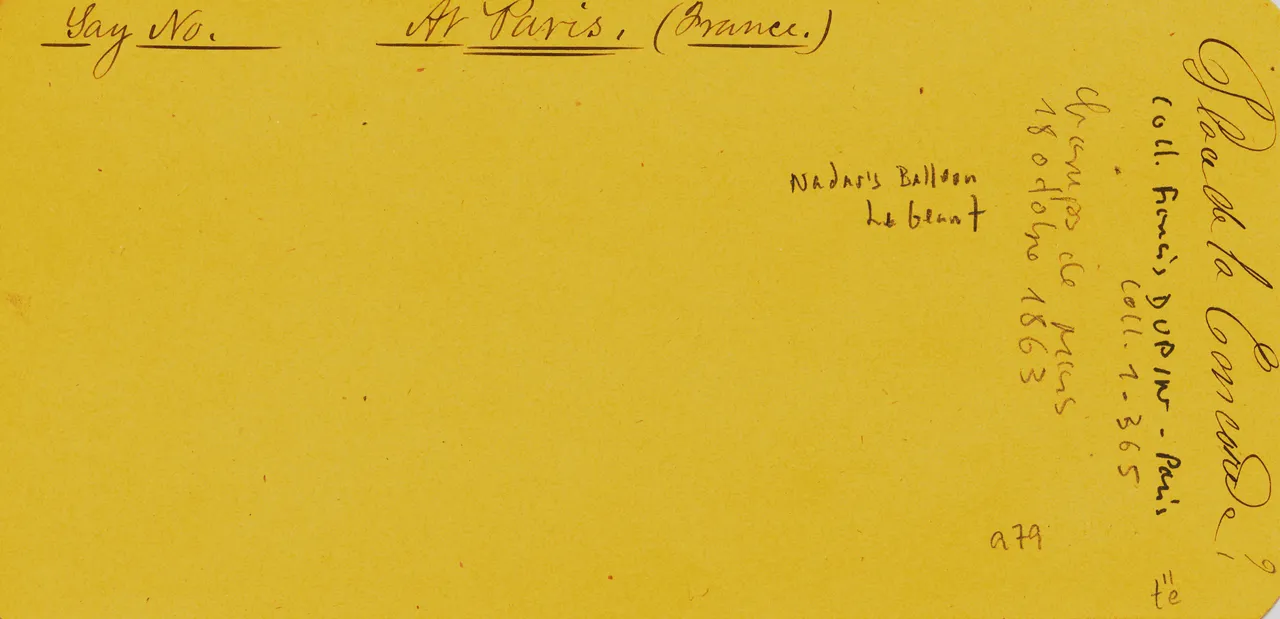 Say No. At Paris. (France.)
Nadar's Balloon
Le Geant
Champs de Mars
18 octobre 1863
Coll. Francis DUPIN - Paris
Coll. 1-365
Place de la Concorde, ?
a79